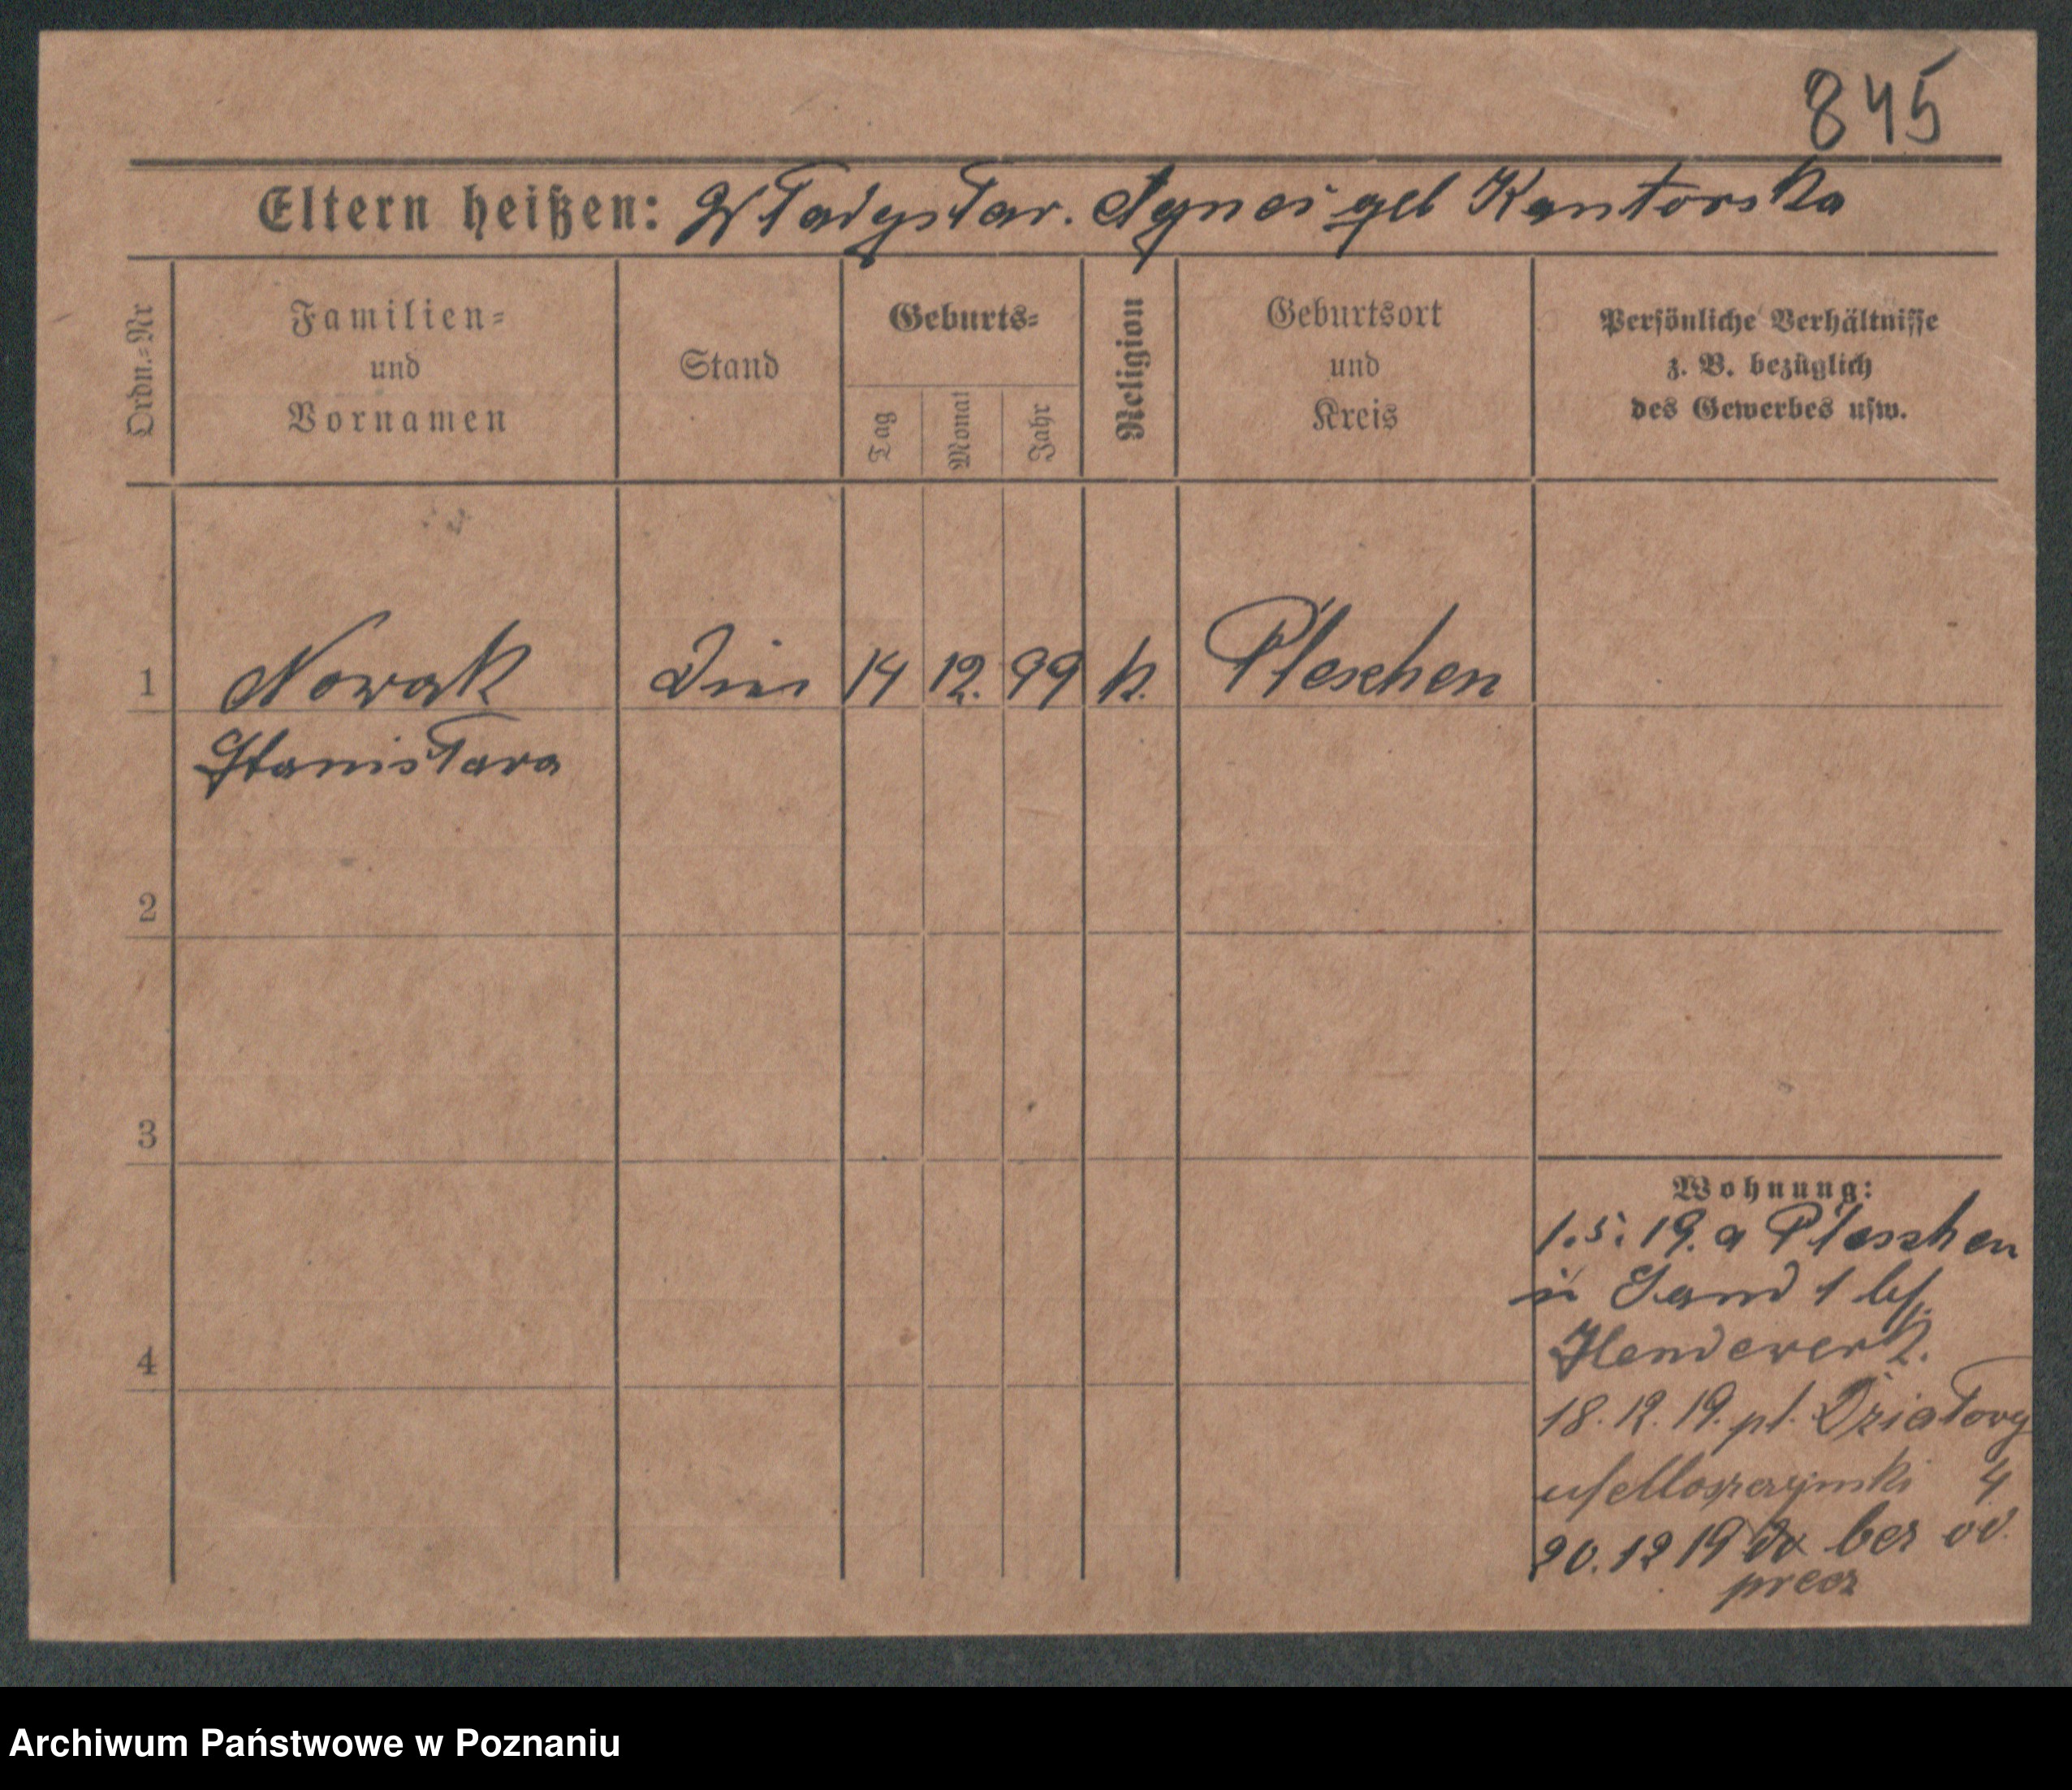 845
Eltern heißen: Władysław. Agnes geb Kantorska
Ordn.=Nr
Familien=
und
Vornamen
Stand
Geburts=
Tag
Monat
Jahr
Religion
Geburtsort
und
Kreis
Persönliche Verhältnisse
z. B. bezüglich
des Gewerbes usw.
1
Nowak
14 12. 99 k. Pleschen
Stanisława
2
3
4
Wohnung:
1.5. 19. a Pleschen
Sand 1 bf.
18. 12. 19. pl. Działowy
4
20. 12 19 bez od.